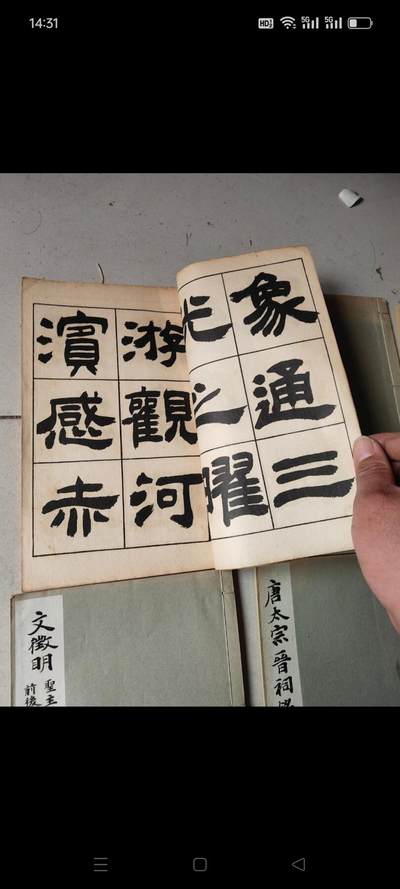 14:31
象通三
光之曜
游觀河
濱感赤
文徵明
聖主
前後
唐太宗晉祠